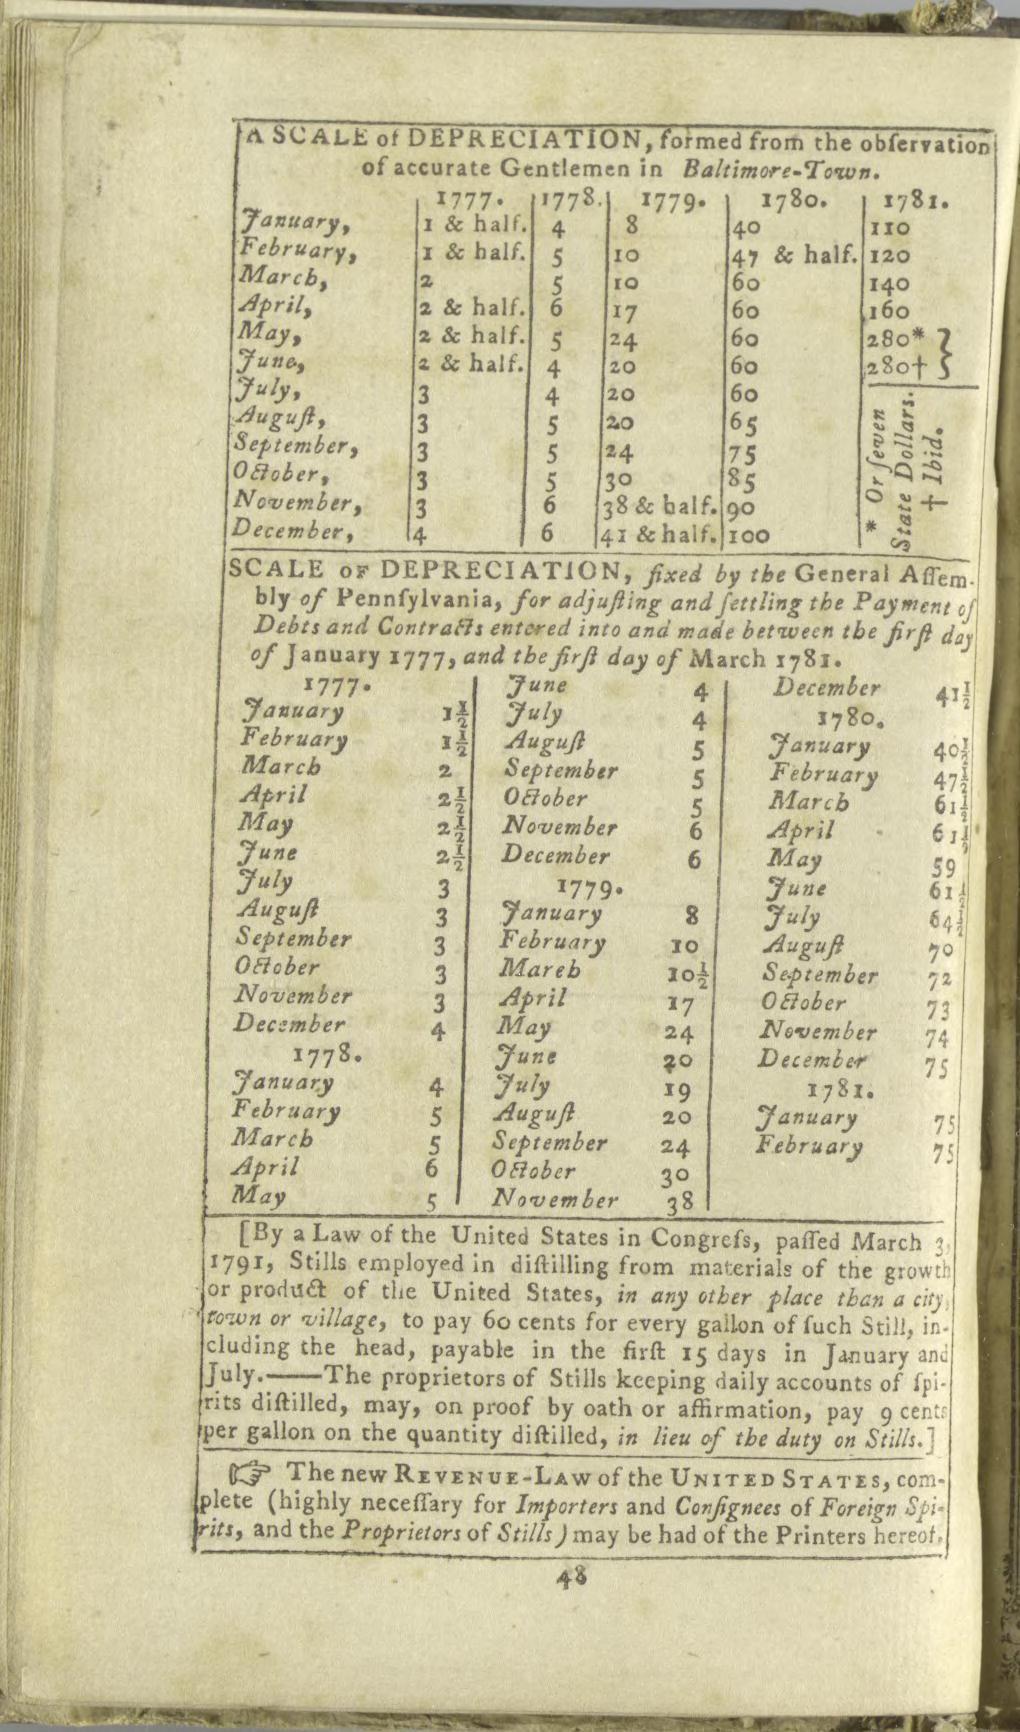 A SCALE of DEPRECIATION, formed from the obſervation
of accurate Gentlemen in Baltimore-Town.
1777. 1778. 1779. 1780. 1781.
January, 1 & half. 4 8 40 110
February, 1 & half. 5 10 47 & half. 120
March, 2 5 10 60 140
April, 2 & half. 6 17 60 160
May, 2 & half. 5 24 60 280* }
June, 2 & half. 4 20 60 280† }
July, 3 4 20 60
Auguſt, 3 5 20 65
September, 3 5 24 75
October, 3 5 30 85
November, 3 6 38 & half. 90
December, 4 6 41 & half. 100
* Or ſeven
State Dollars.
† Ibid.
SCALE OF DEPRECIATION, fixed by the General Aſſem-
bly of Pennſylvania, for adjuſting and ſettling the Payment of
Debts and Contracts entered into and made between the firſt day
of January 1777, and the firſt day of March 1781.
1777.
January 1½
February 1½
March 2
April 2½
May 2½
June 2½
July 3
Auguſt 3
September 3
October 3
November 3
December 4
1778.
January 4
February 5
March 5
April 6
May 5
June 4
July 4
Auguſt 5
September 5
October 5
November 6
December 6
1779.
January 8
February 10
March 10½
April 17
May 24
June 20
July 19
Auguſt 20
September 24
October 30
November 38
December 41½
1780.
January 40½
February 47½
March 61½
April 61½
May 59
June 61½
July 64½
Auguſt 70
September 72
October 73
November 74
December 75
1781.
January 75
February 75
[By a Law of the United States in Congreſs, paſſed March 3,
1791, Stills employed in diſtilling from materials of the growth
or product of the United States, in any other place than a city,
town or village, to pay 60 cents for every gallon of ſuch Still, in-
cluding the head, payable in the firſt 15 days in January and
July.——The proprietors of Stills keeping daily accounts of ſpi-
rits diſtilled, may, on proof by oath or affirmation, pay 9 cents
per gallon on the quantity diſtilled, in lieu of the duty on Stills.]
☞ The new REVENUE-LAW of the UNITED STATES, com-
plete (highly neceſſary for Importers and Conſignees of Foreign Spi-
rits, and the Proprietors of Stills) may be had of the Printers hereof.
48